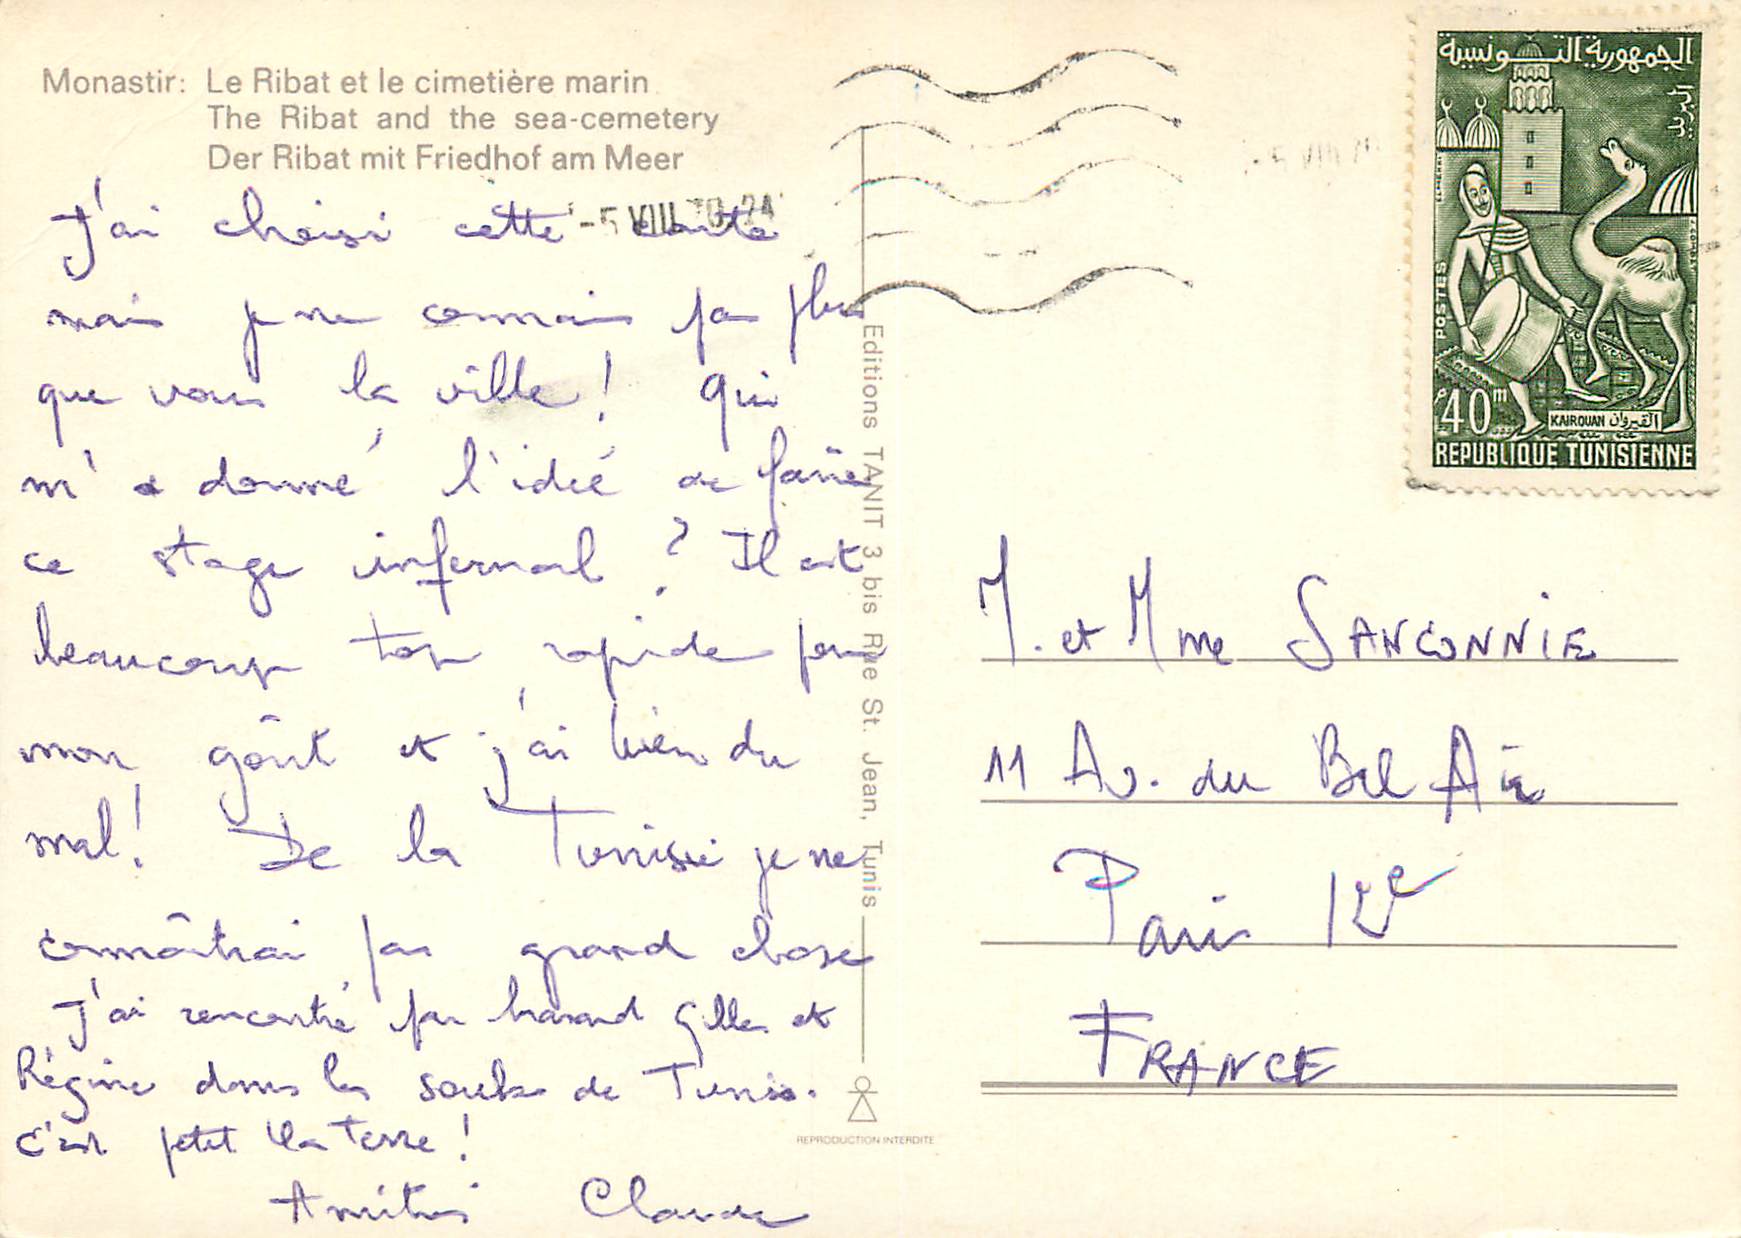 Monastir: Le Ribat et le cimetière marin
The Ribat and the sea-cemetery
Der Ribat mit Friedhof am Meer
J'ai choisi cette carte
mais je ne connais pas plus
que vous la ville! Qui
m'a donné l'idée de faire
ce stage infernal? Il est
beaucoup trop rapide pour
mon goût et j'ai bien du
mal! De la Tunisie je ne
connaîtrai pas grand chose
J'ai rencontré par hasard Gilles et
Régine dans les souks de Tunis.
C'est petit la terre!
Amitiés Claude
-5 VIII 70-24
Editions TANIT 3 bis Rue St. Jean, Tunis
REPRODUCTION INTERDITE
الجمهورية التونسية
البريد
POSTES
40m
KAIROUAN القيروان
REPUBLIQUE TUNISIENNE
M. et Mme SANCONNIE
11 Av. du Bel Air
Paris 12e
FRANCE